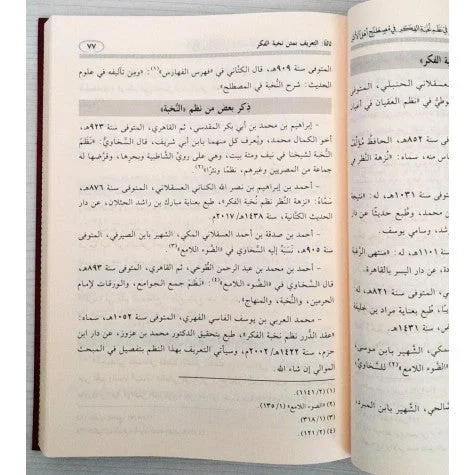 ثالثا: التعريف بمتن نخبة الفكر
٧٧
المتوفى سنة ٩٠٩هـ، قال الكتاني في «فهرس الفهارس»(١): «ومن تآليفه في علوم
الحديث: شرح النخبة في المصطلح».
ذِكر بعض من نظم «النُّخبة»
- إبراهيم بن محمد بن أبي بكر المقدسي، ثم القاهري، المتوفى سنة ٩٢٣هـ،
أخو الكمال محمد، ويُعرف كل منهما بابن أبي شريف، قال السَّخاوي: «نَظَمَ
النُّخبة لشيخنا في نيف ومئة بيت، وهي على رويِّ الشاطبية وبحرها، وقرَّضها له
جماعة من المصريين وغيرهم، نظمًا ونثرًا»(٢).
- أحمد بن إبراهيم بن نصر الله الكناني العسقلاني، المتوفى سنة ٨٧٦هـ،
سَمَّاهُ: «نزهة النظر نظم نخبة الفكر»، طبع بعناية مبارك بن راشد الحثلان، عن دار
الحديث الكتَّانية، سنة ١٤٣٨هـ/٢٠١٧م.
- أحمد بن صدقة بن أحمد العسقلاني المكي، الشهير بابن الصيرفي، المتوفى
سنة ٩٠٥هـ، نَسَبَهُ إليه السَّخاوي في «الضوء اللامع»(٣).
- أحمد بن محمد بن عبد الرحمن الطُّوخي، ثم القاهري، المتوفى سنة ٨٩٣هـ،
قال السَّخاوي في «الضوء اللامع»(٤): «نَظَمَ جمع الجوامع، والورقات لإمام
الحرمين، والنُّخبة، والمنهاج».
- محمد العربي بن يوسف الفاسي الفهري، المتوفى سنة ١٠٥٢هـ، سماه:
«عقد الدُّرر نظم نخبة الفكر»، طبع بتحقيق الدكتور محمد بن عزوز، عن دار ابن
حزم، سنة ١٤٢٢هـ/٢٠٠٢م، وسيأتي التعريف بهذا النظم بتفصيل في المبحث
الموالي إن شاء الله.
(١) (٢/ ١١٤١).
(٢) «الضوء اللامع» (١/ ١٣٥).
(٣) (١/ ٣١٨).
(٤) (٢/ ١٢١).
في نظم نخبة الفكر في مصطلح أهل الأثر
الفكر»
العسقلاني الحنبلي، المتوفى
وطيُّ في «نظم العقيان في
سنة ٨٥٢هـ، الحافظُ مُؤلِّف
سماه: «نزهة النظر في
سنة ١٠٣١هـ، له: «نتيجة
محمد، وطُبع حديثًا عن دار
رشد، وسامي يوسف.
سنة ١١٠١هـ، له: «منتهى الرَّغبة
، عن دار اليسر بالقاهرة.
طبع بعناية مراد بن خليفة
سنة ١٤٣١هـ.
المكي، الشهير بابن موسى،
«الضَّوء اللامع»(٢) للسَّخاوي
الصالحي، الشَّهير بابن المبرد،